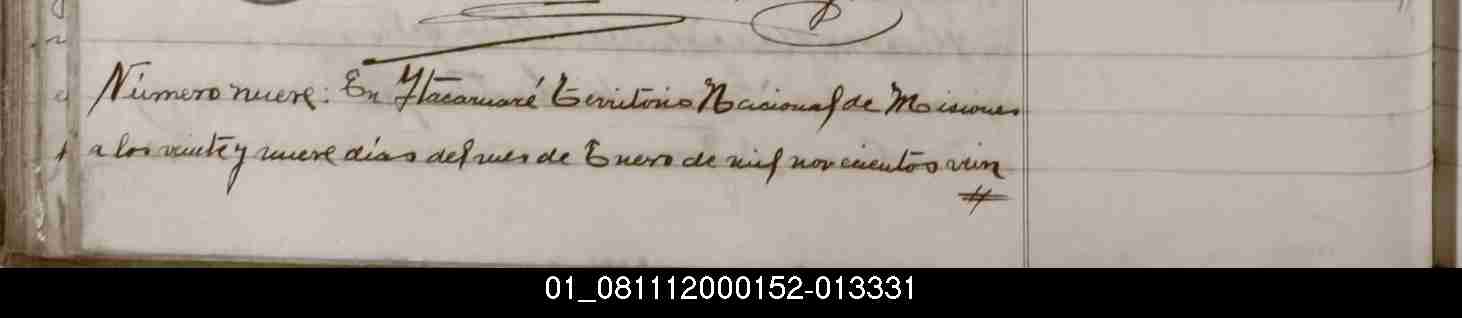 Número nueve: En Itacaruaré Territorio Nacional de Misiones
a los veinte y nueve días del mes de Enero de mil novecientos vein
01_081112000152-013331